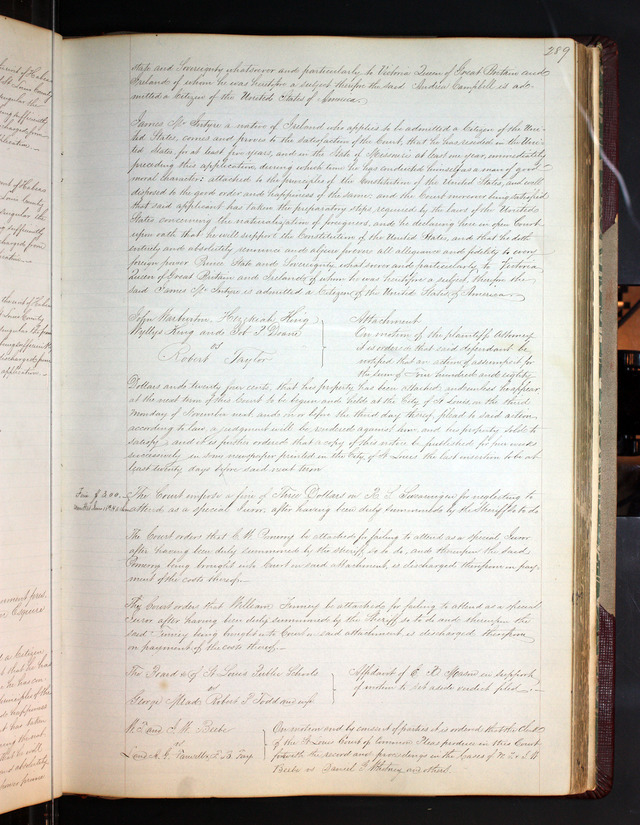 289
state and Sovereignty whatsoever and particularly to Victoria Queen of Great Britain and
Ireland of whom he was heretofore a subject therefore the said Andrew Campbell is ad-
mitted a Citizen of the United States of America.
James Mc Intyre a native of Ireland who applies to be admitted a Citizen of the Uni-
ted States, comes and proves to the satisfaction of the Court, that he has resided in the Uni-
ted States for at least five years, and in the State of Missouri at least one year, immediately
preceding this application, during which time he has conducted himself as a man of good
moral character, attached to the principles of the Constitution of the United States, and well
disposed to the good order and happiness of the same and the Court moreover being satisfied
that said applicant has taken the preparatory steps required by the laws of the United
States concerning the naturalization of foreigners, and he declaring here in open Court
upon oath that he will support the Constitution of the United States, and that he doth
entirely and absolutely renounce and abjure forever all allegiance and fidelity to every
foreign power Prince State and Sovereignty whatsoever and particularly to Victoria
Queen of Great Britain and Ireland of whom he was heretofore a subject therefore the
said James Mc Intyre is admitted a Citizen of the United States of America.
John Warburton, Hezekiah King
Wyllys King and Job F Doane
vs
Robert Taylor
Attachment
On motion of the plaintiffs Attorney
it is ordered that said defendant be
notified that an action of assumpsit for
the sum of Four hundred and eighty
Dollars and twenty five cents, that his property has been attached and unless he appear
at the next term of this Court to be begun and held at the City of St Louis, on the third
Monday of November next and on or before the third day thereof plead to said action
according to law a judgment will be rendered against him and his property sold to
satisfy and it is further ordered that a copy of this notice be published for four weeks
successively in some newspaper printed in the City of St Louis the last insertion to be at
least twenty days before said next term
Fine $ 3.00
The Court impose a fine of Three Dollars on for neglecting to
attend as a special Juror, after having been duly summoned by the Sheriff so to do
The Court orders that C. W. be attached for failing to attend as a special Juror
after having been duly summoned by the sheriff so to do, and thereupon the said
being brought into Court on said attachment, is discharged therefrom on pay-
ment of the costs thereof.
The Court orders that William Finney be attached for failing to attend as a special
Juror after having been duly summoned by the Sheriff so to do and thereupon the
said Finney being brought into Court on said attachment is discharged therefrom
on payment of the cost thereof.
The Board of St Louis Public Schools
vs
George Mead, Robert P Todd and wife
Affidavit of E. R. Mason in support
of motion to set aside verdict filed
W. F. and J. W. Beebe
vs
On motion and by consent of parties it is ordered that the Clerk
of the St Louis Court of Common Pleas produce in this Court
forthwith the record and proceedings in the cases of W. F. & J. W
Beebe vs. Daniel Whitney and others.